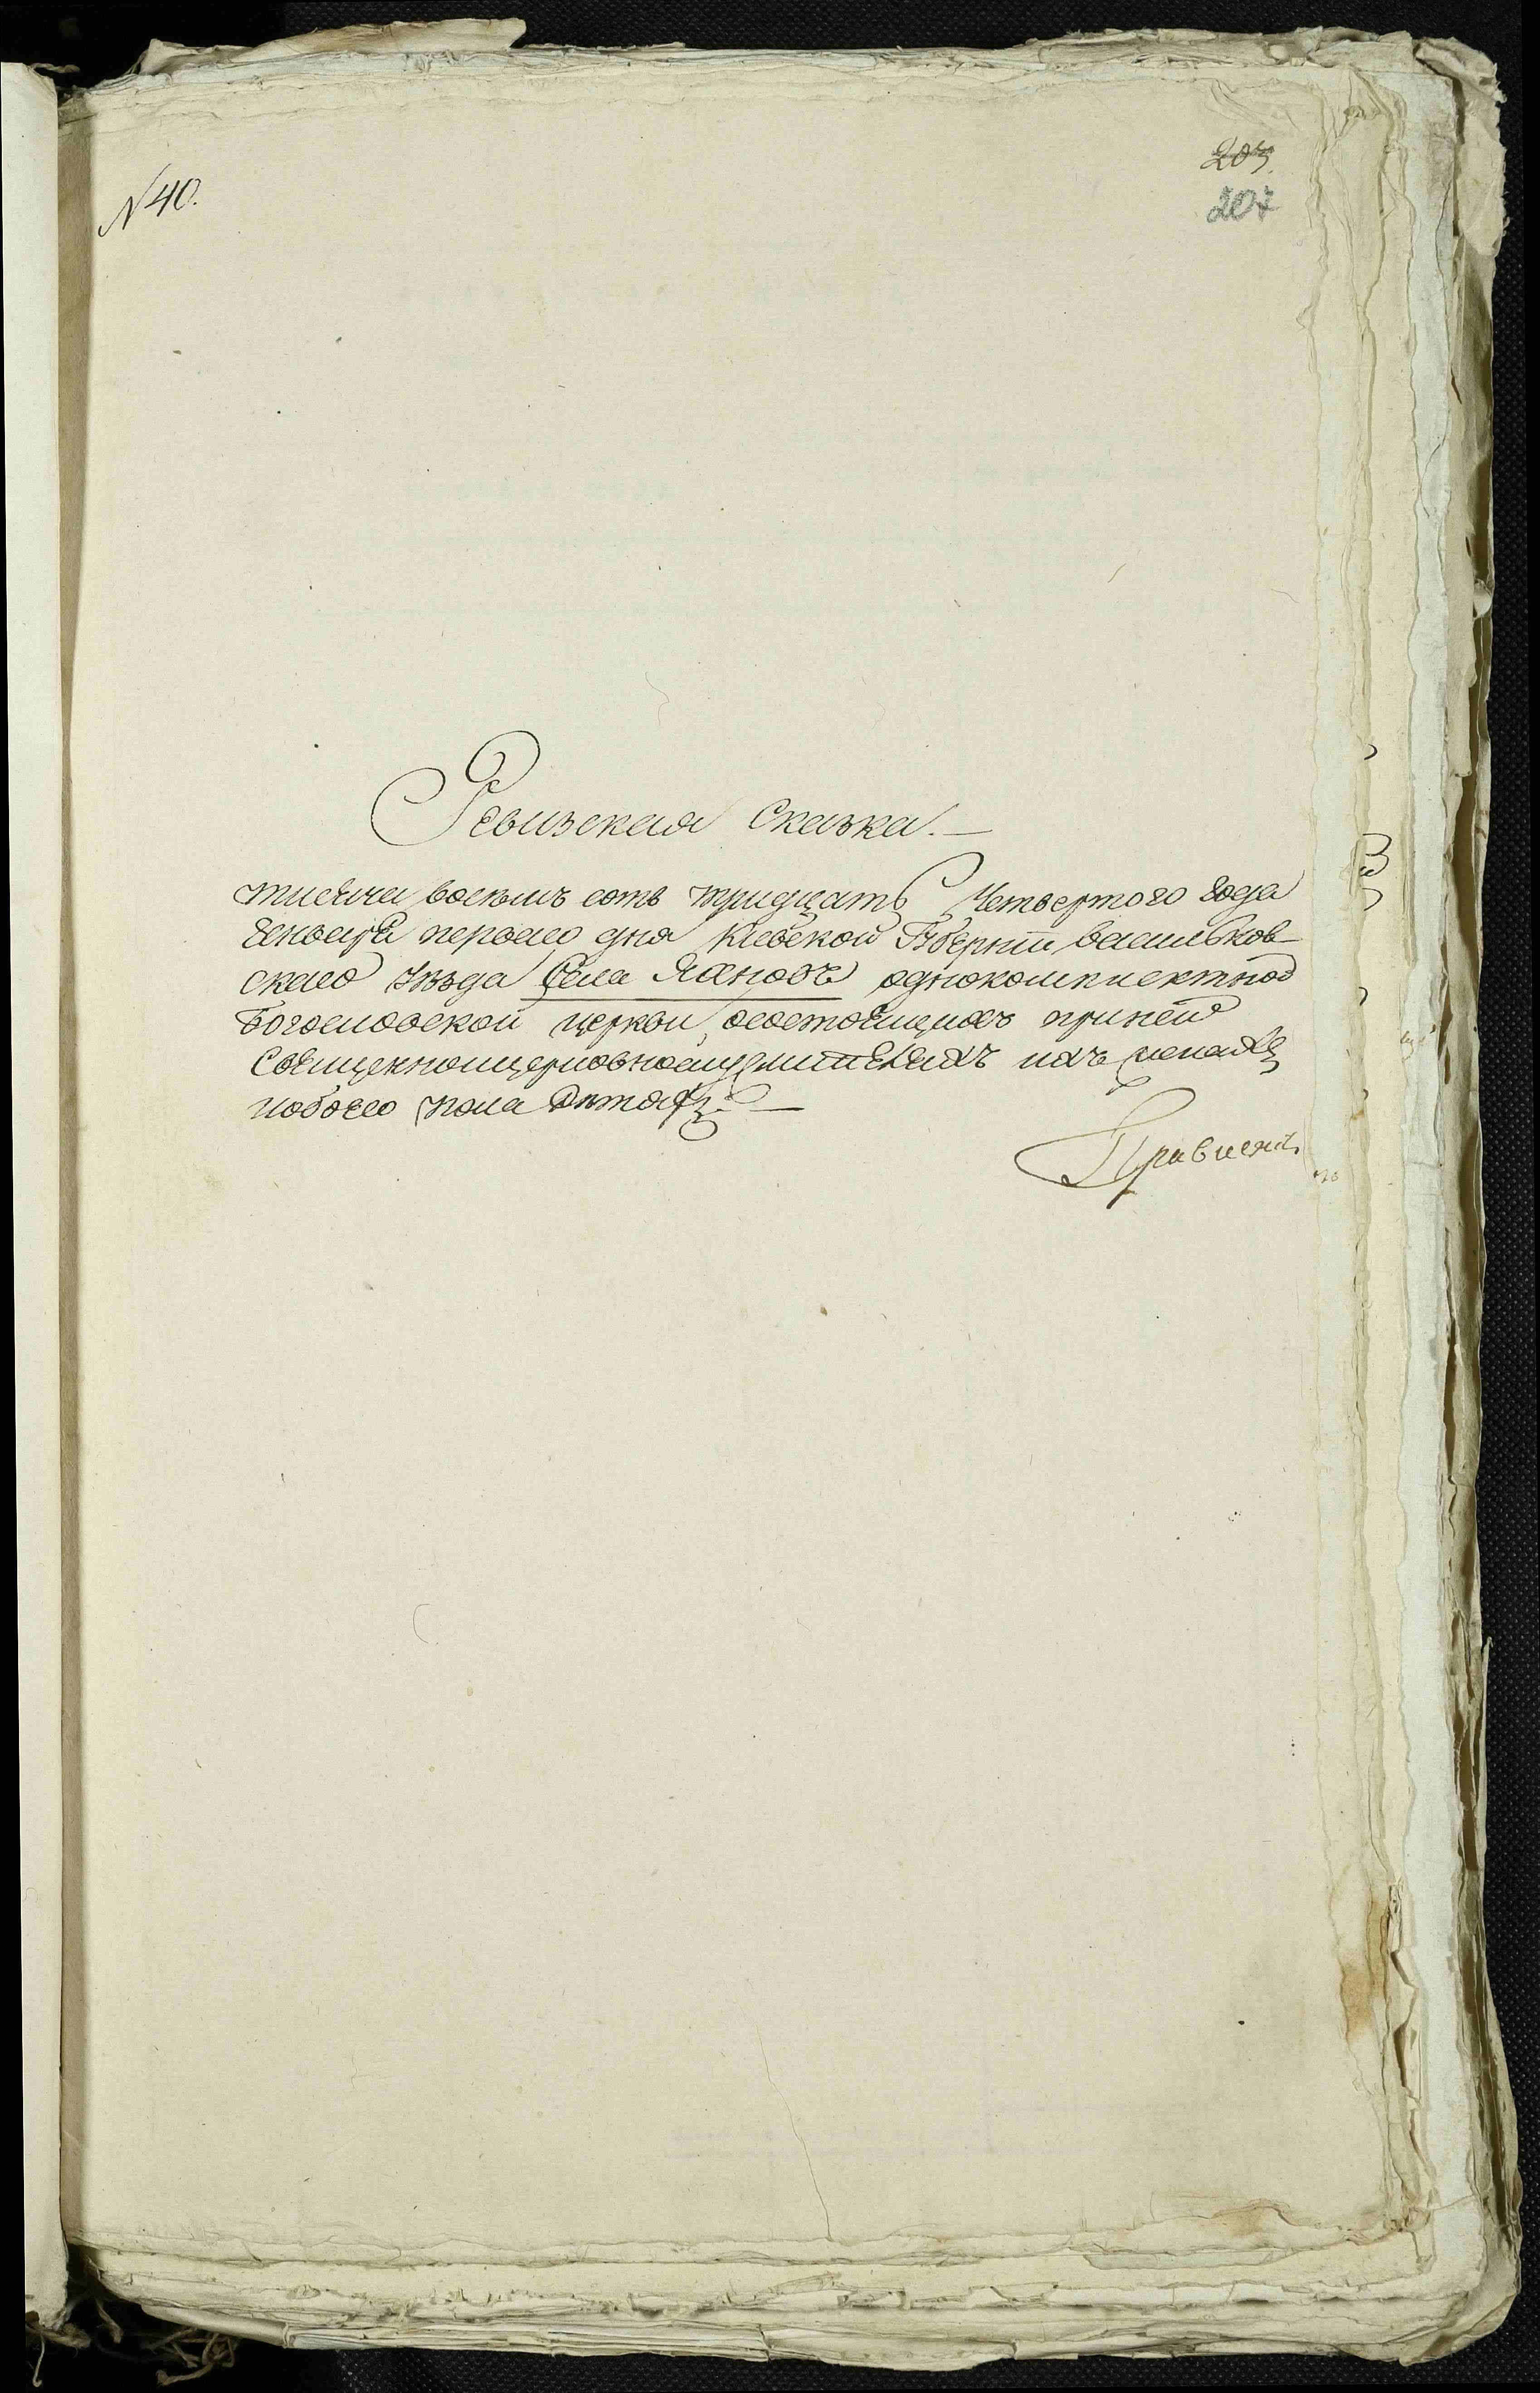 № 40.
203.
207
Ревизская Сказка. —
тысяча восемь сотъ тридцать Четвертого года
Генваря первого дня Киевской Губерніи васильков-
скаго уѣзда Села Яхновъ однокомплектной
Богословской церкви, осостоящихъ приней
Священноцерковнослужителяхъ ихъ женахъ
иобоего пола дѣтяхъ. —